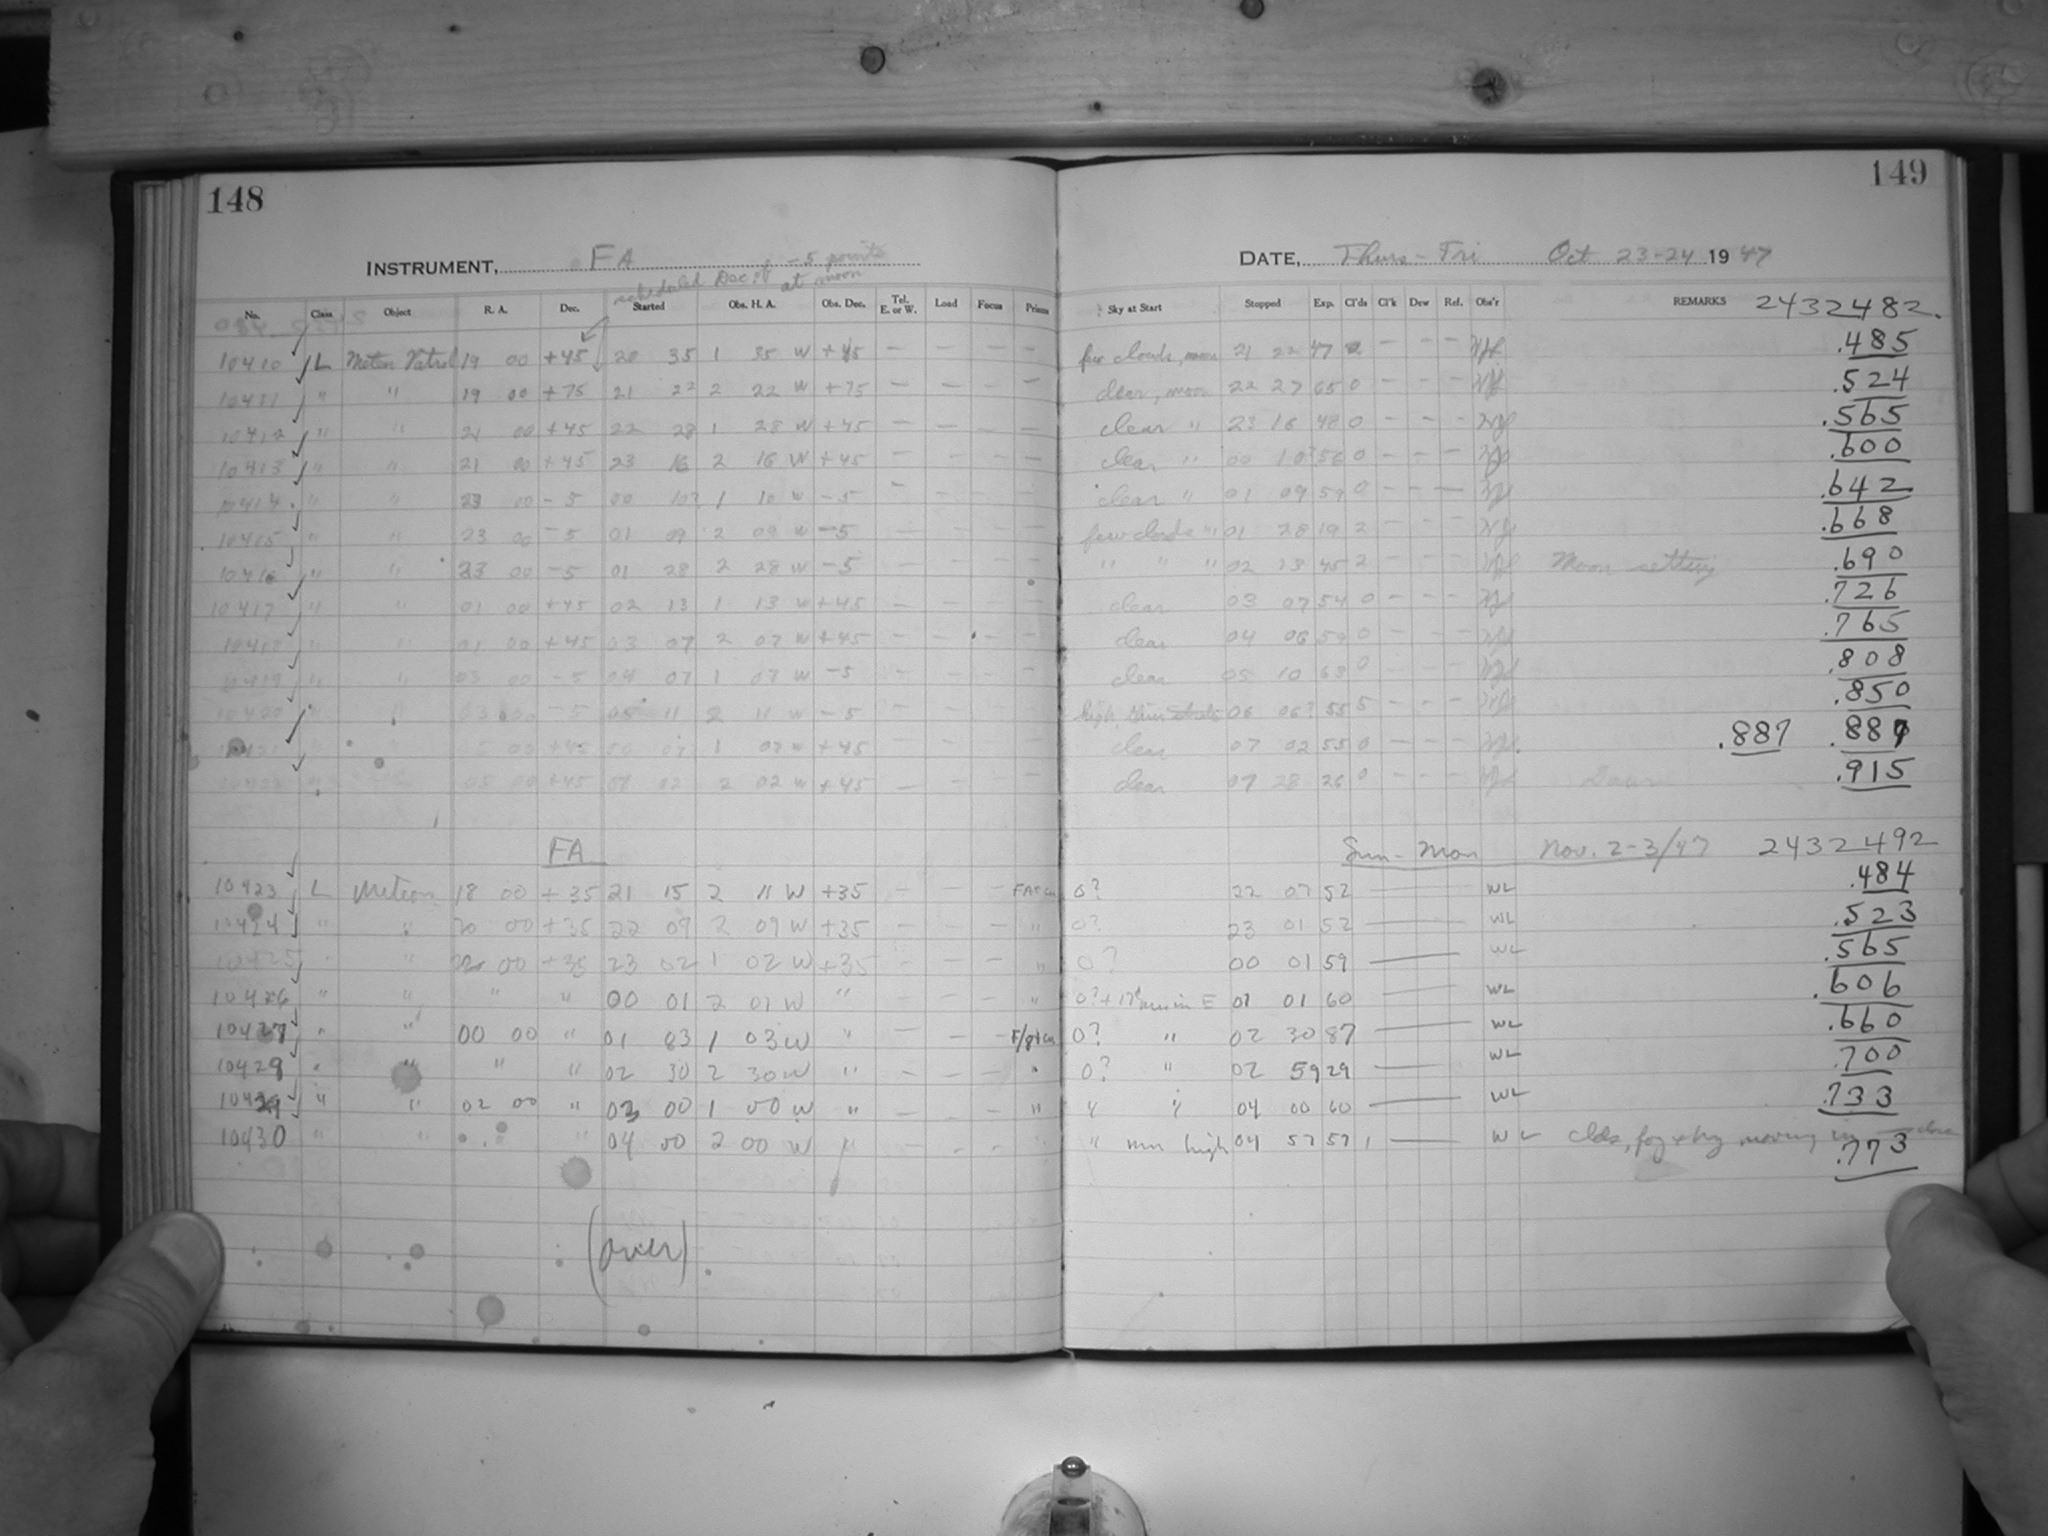 148
149
INSTRUMENT, FA
DATE, Thurs - Fri Oct 23-24 1947
scheduled Dec. of -5 points
at moon
No. Class Object R. A. Dec. Started Obs. H. A. Obs. Dec. Tel. E. or W. Load Focus Prisms Sky at Start Stopped Exp. Cl'ds Cl'k Dew Ref. Obs'r REMARKS 2432482.
10410 L Meteor Patrol 19 00 +45 20 35 1 35 W +45 few clouds, moon 21 22 47 2 .485
10411 " " 19 00 +75 21 22 2 22 W +75 clear, moon 22 27 65 0 .524
10412 " " 21 00 +45 22 28 1 28 W +45 clear " 23 16 48 0 .565
10413 " " 21 00 +45 23 16 2 16 W +45 clear " 00 10? 56 0 .600
10414 " " 23 00 -5 00 10? 1 10 W -5 clear " 01 09 59 0 .642
10415 " " 23 00 -5 01 09 2 09 W -5 few clouds " 01 28 19 2 .668
10416 " " 23 00 -5 01 28 2 28 W -5 " " " 02 13 45 2 Moon setting .690
10417 " " 01 00 +45 02 13 1 13 W +45 clear 03 07 54 0 .726
10418 " " 01 00 +45 03 07 2 07 W +45 clear 04 06 59 0 .765
10419 " " 03 00 -5 04 07 1 07 W -5 clear 05 10 63 0 .808
10420 " " 03 00 -5 05 11 2 11 W -5 high thin 06 06? 55 5 .850
10421 " 05 00 +45 06 07 1 07 W +45 clear 07 02 55 0 .887 .887
" 05 00 +45 07 02 2 02 W +45 clear 07 28 26 0 Dawn .915
FA Sun - Mon Nov. 2-3/47 2432492
10423 L Meteor 18 00 +35 21 15 2 11 W +35 0? 22 07 52 WL .484
10424 " " 20 00 +35 22 09 2 09 W +35 " 0? 23 01 52 WL .523
10425 " " 22 00 +35 23 02 1 02 W +35 " 0? 00 01 59 WL .565
10426 " " " " 00 01 2 01 W " " 0? + in E 01 01 60 WL .606
10427 " " 00 00 " 01 03 1 03 W " 0? " 02 30 87 WL .660
10428 " " " " 02 30 2 30 W " " 0? " 02 59 29 WL .700
10429 " " 02 00 " 03 00 1 00 W " " " " 04 00 60 WL .733
10430 " " " 04 00 2 00 W " " " mn high 04 57 57 1 WL clds, fog moving in .773
(over)